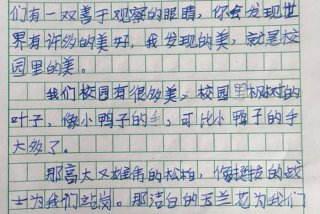 们有一双善于观察的眼睛，你会发现世
界有许多的美好，我发现的美，就是校
园里的美。
我们校园有很多美，校园里树的
叶子，像小鸭子的手，可比小鸭子的手
大多了。
那高大又雄伟的松柏，像挺拔的战
士为我们站岗。那洁白的玉兰花为我们